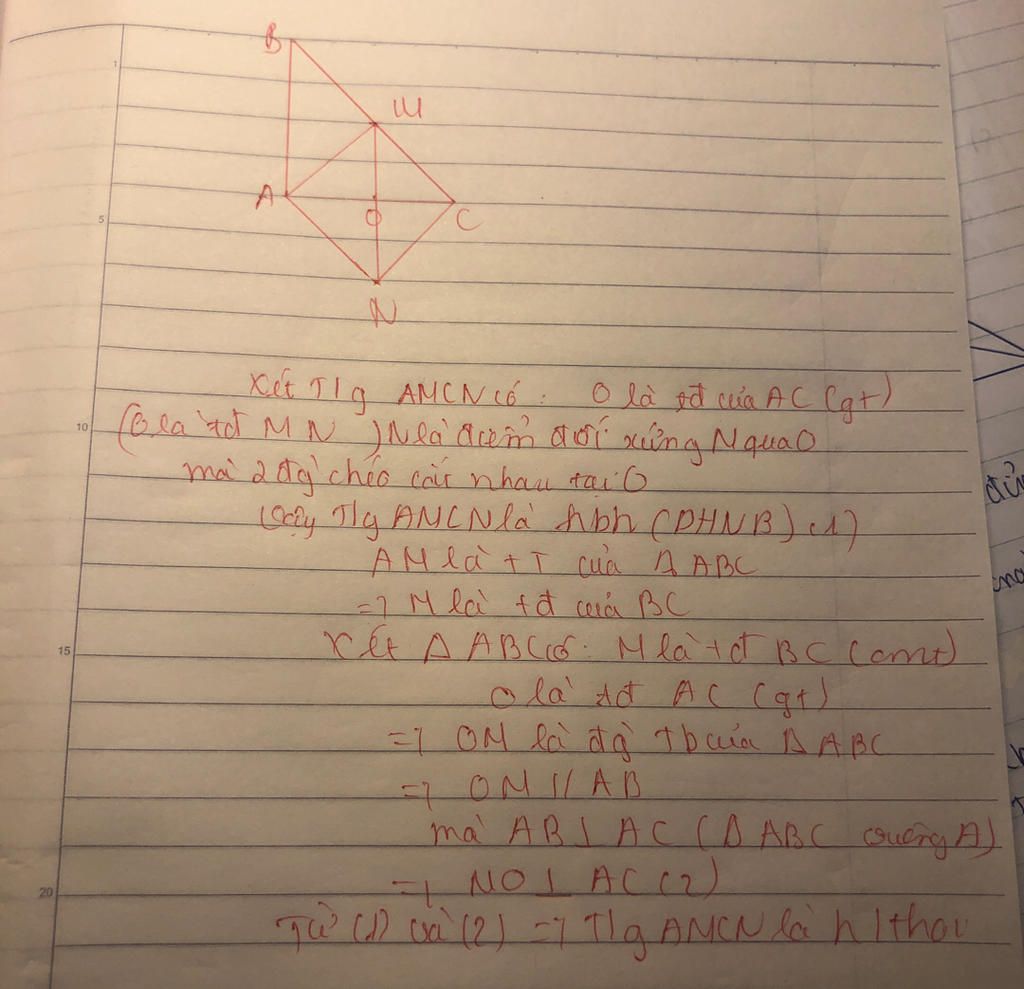 B
M
A
O
C
N
1
5
10
15
20
Xét T/g AMCN có: O là tđ của AC (gt)
(O là tđ MN) N là điểm đối xứng N qua O
mà 2 đg chéo cắt nhau tại O
Vậy T/g AMCN là hbh (DHNB) (1)
AM là tT của Δ ABC
=> M là tđ của BC
Xét Δ ABC có: M là tđ BC (cmt)
O là tđ AC (gt)
=> OM là đg tb của Δ ABC
=> OM // AB
mà AB ⊥ AC (Δ ABC vuông A)
=> MO ⊥ AC (2)
Từ (1) và (2) => T/g AMCN là h/thoi